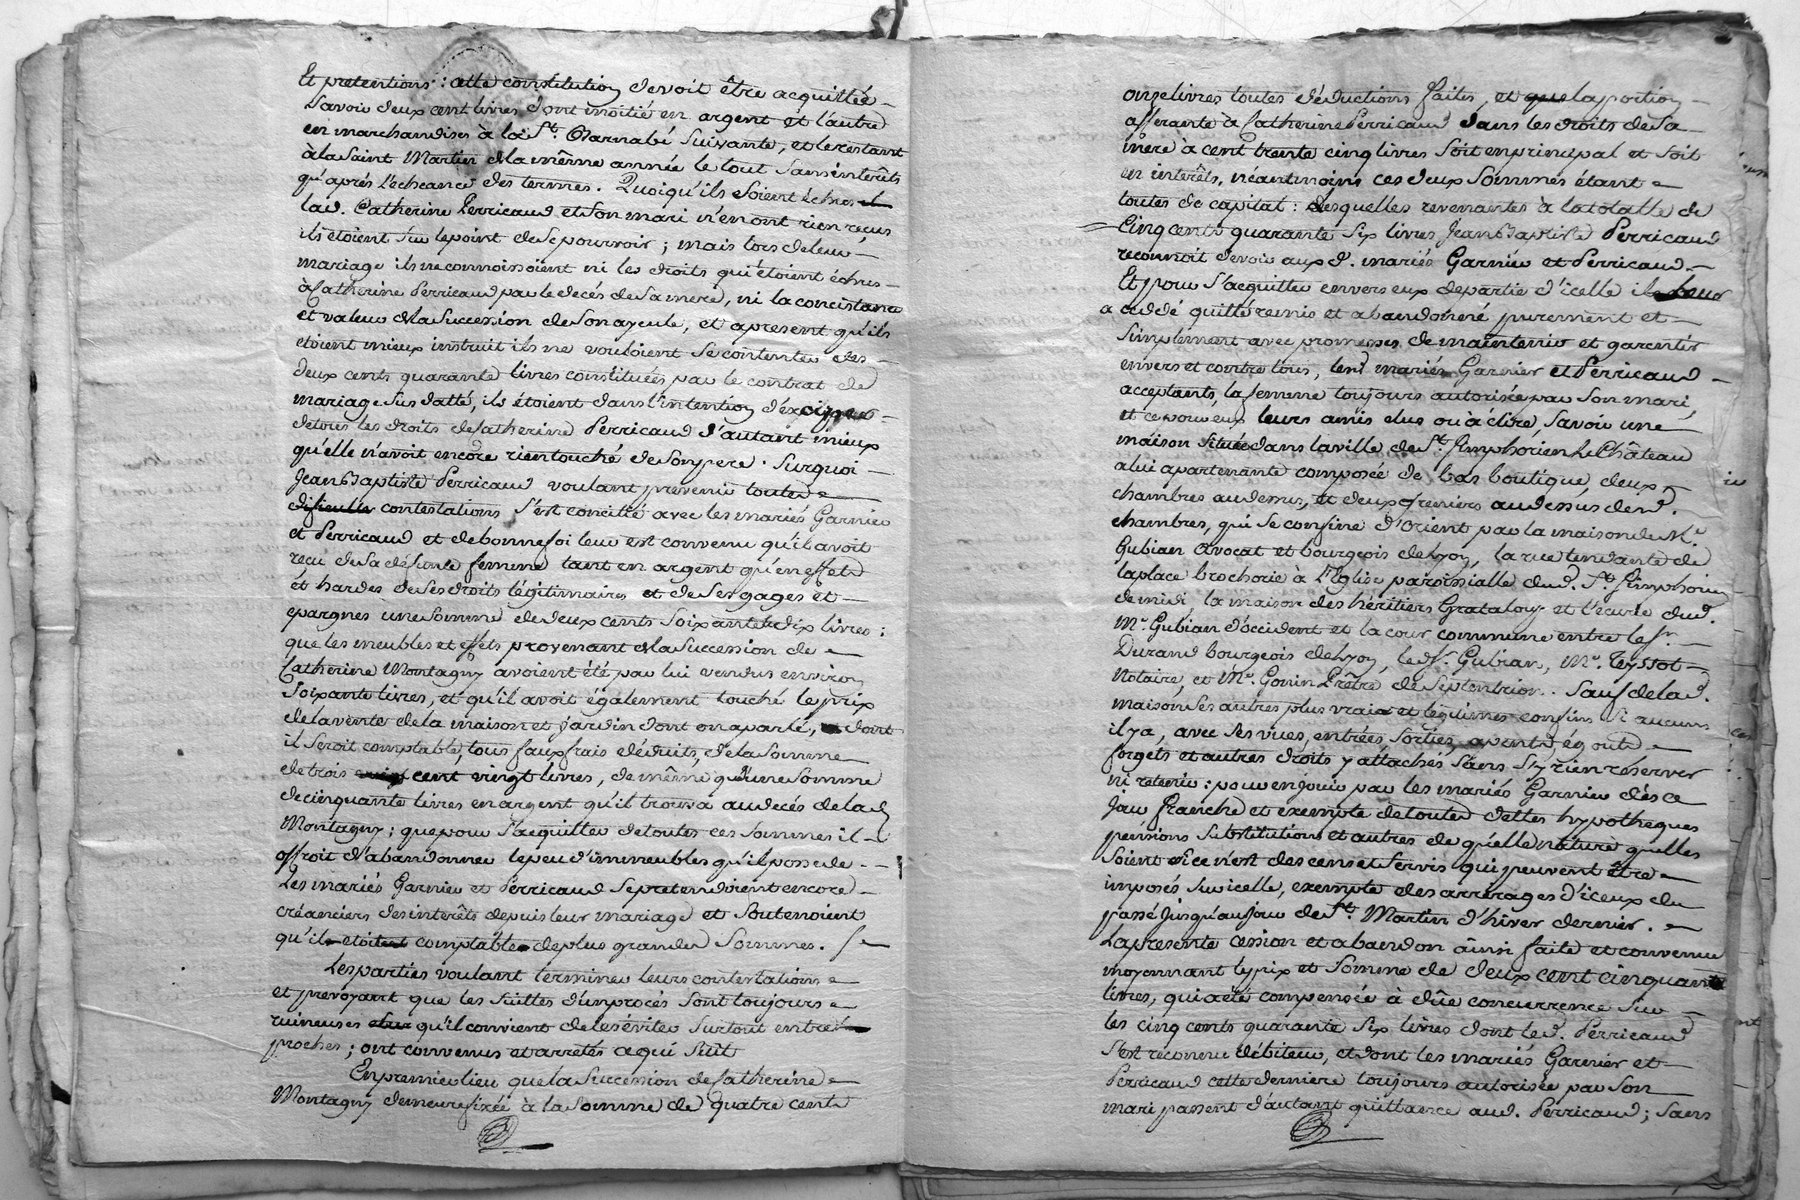 Et pretentions : cette constitution devoit être acquittée
Savoir deux cent livres dont moitié en argent et l'autre
en marchandises à la St. Barnabé Suivante, et le restant
à la Saint Martin de la même année le tout Sans intérêts
qu'aprés l'echeance des termes. Quoiqu'ils Soient échus
lad. Catherine Perricaud et Son mari n'en ont rien reçus
ils étoient Sur le point de Se pourvoir ; mais lors de leur
mariage ils ne connoissoient ni les droits qui étoient échus
à Catherine Perricaud par le decés de Sa mere, ni la concistance
et valeur de la Succession de Son ayeule, et apresent qu'ils
etoient mieux instruit ils ne vouloient Se contenter des
deux cents quarante livres constituées par le contrat de
mariage Sus datté, ils étoient dans l'intention d'exiger
de tous les droits de Catherine Perricaud d'autant mieux
qu'elle n'avoit encore rien touché de Son pere. Surquoi
Jean Baptiste Perricaud voulant prevenir toutes
contestations S'est concilié avec les mariés Garnier
et Perricaud et de bonne foi leur est convenu qu'il avoit
reçu de Sa défunte femme tant en argent qu'en effets
et hardes de Ses droits légitimaires et de Ses gages et
epargnes une Somme de deux cents Soixante dix livres :
que les meubles et effets provenant de la Succession de
Catherine Montagny avoient été par lui vendus environ
Soixante livres, et qu'il avoit également touché le prix
de la vente de la maison et jardin dont on a parlé, dont
il Seroit comptable, tous faux frais déduits, de la Somme
de trois cent vingt livres, de même qu'une Somme
de cinquante livres en argent qu'il trouva au decés de lad.
Montagny ; que pour S'acquitter de toutes ces Sommes il
offroit d'abandonner le peu d'immeubles qu'il possede.
Les mariés Garnier et Perricaud Se pretendoient encore
créanciers des interêts depuis leur mariage et Soutenoient
qu'il étoit comptable de plus grandes Sommes.
Les parties voulant terminer leurs contestations
et prevoyant que les Suittes d'un procés Sont toujours
ruineuses qu'il convient de les éviter Surtout entre
proches ; ont convenus et arretés ce qui Suit
En premier lieu que la Succession de Catherine
Montagny demeure fixée à la Somme de quatre cents
onze livres toutes déductions faites, et que la portion
afférante à Catherine Perricaud dans les droits de Sa
mere à cent trente cinq livres Soit en principal et Soit
en interêts, néantmoins ces deux Sommes étant
toutes de capital : desquelles revenantes à la totalle de
Cinq cents quarante Six livres Jean Baptiste Perricaud
reconnoit devoir aux d. mariés Garnier et Perricaud.
Et pour S'acquitter envers eux de partie d'icelle il
a cédé quitté remis et abandonné purement et
Simplement avec promesses de maintenir et garentir
envers et contre tous, lesd mariés Garnier et Perricaud
acceptants, la femme toujours autorisée par Son mari,
et ce pour eux leurs amis élus ou à élire, Savoir une
maison Située dans la ville de St. Simphorien le Château
a lui apartenante composée de bas boutique, deux
chambres au dessus, et deux greniers au dessus desd.
chambres, qui Se confine d'orient par la maison de Mr.
Gubian Avocat et bourgeois de Lyon, la rue tendante de
la place brocherie à l'Eglise paroissialle dud. St. Simphorien
de midi, la maison des héritiers Grataloup et l'écurie dud.
Mr. Gubian d'occident et la cour commune entre le Sr.
Durand bourgeois de Lyon, led. Sr. Gubian, Me. Teyssot
Notaire, et Mr. Gonin Prêtre de Septentrion. Sauf de lad.
maison Ses autres plus vrais et legitimes confins Si aucuns
il y a, avec Ses vues, entrées, Sorties, apents, égouts
forgets et autres droits y attachés Sans S'y rien réserver
ni retenir : pour en jouir par les mariés Garnier dés ce
jour franche et exempte de toutes dettes hypotheques
pensions Substitutions et autres de quelle nature quelles
Soient Si ce n'est des cens et Servis qui peuvent être
imposés Sur icelle, exempte des arrérages d'iceux du
passé jusqu'au jour de St. Martin d'hiver dernier.
La presente cession et abandon ainsi faite et convenue
moyennant le prix et Somme de deux cent cinquante
livres, qui a été compensée à dûe concurrence Sur
les cinq cents quarante Six livres dont led. Perricaud
S'est reconnu débiteur, et dont les mariés Garnier et
Perricaud cette derniere toujours autorisée par Son
mari passent d'autant quittance aud. Perricaud ; Sans